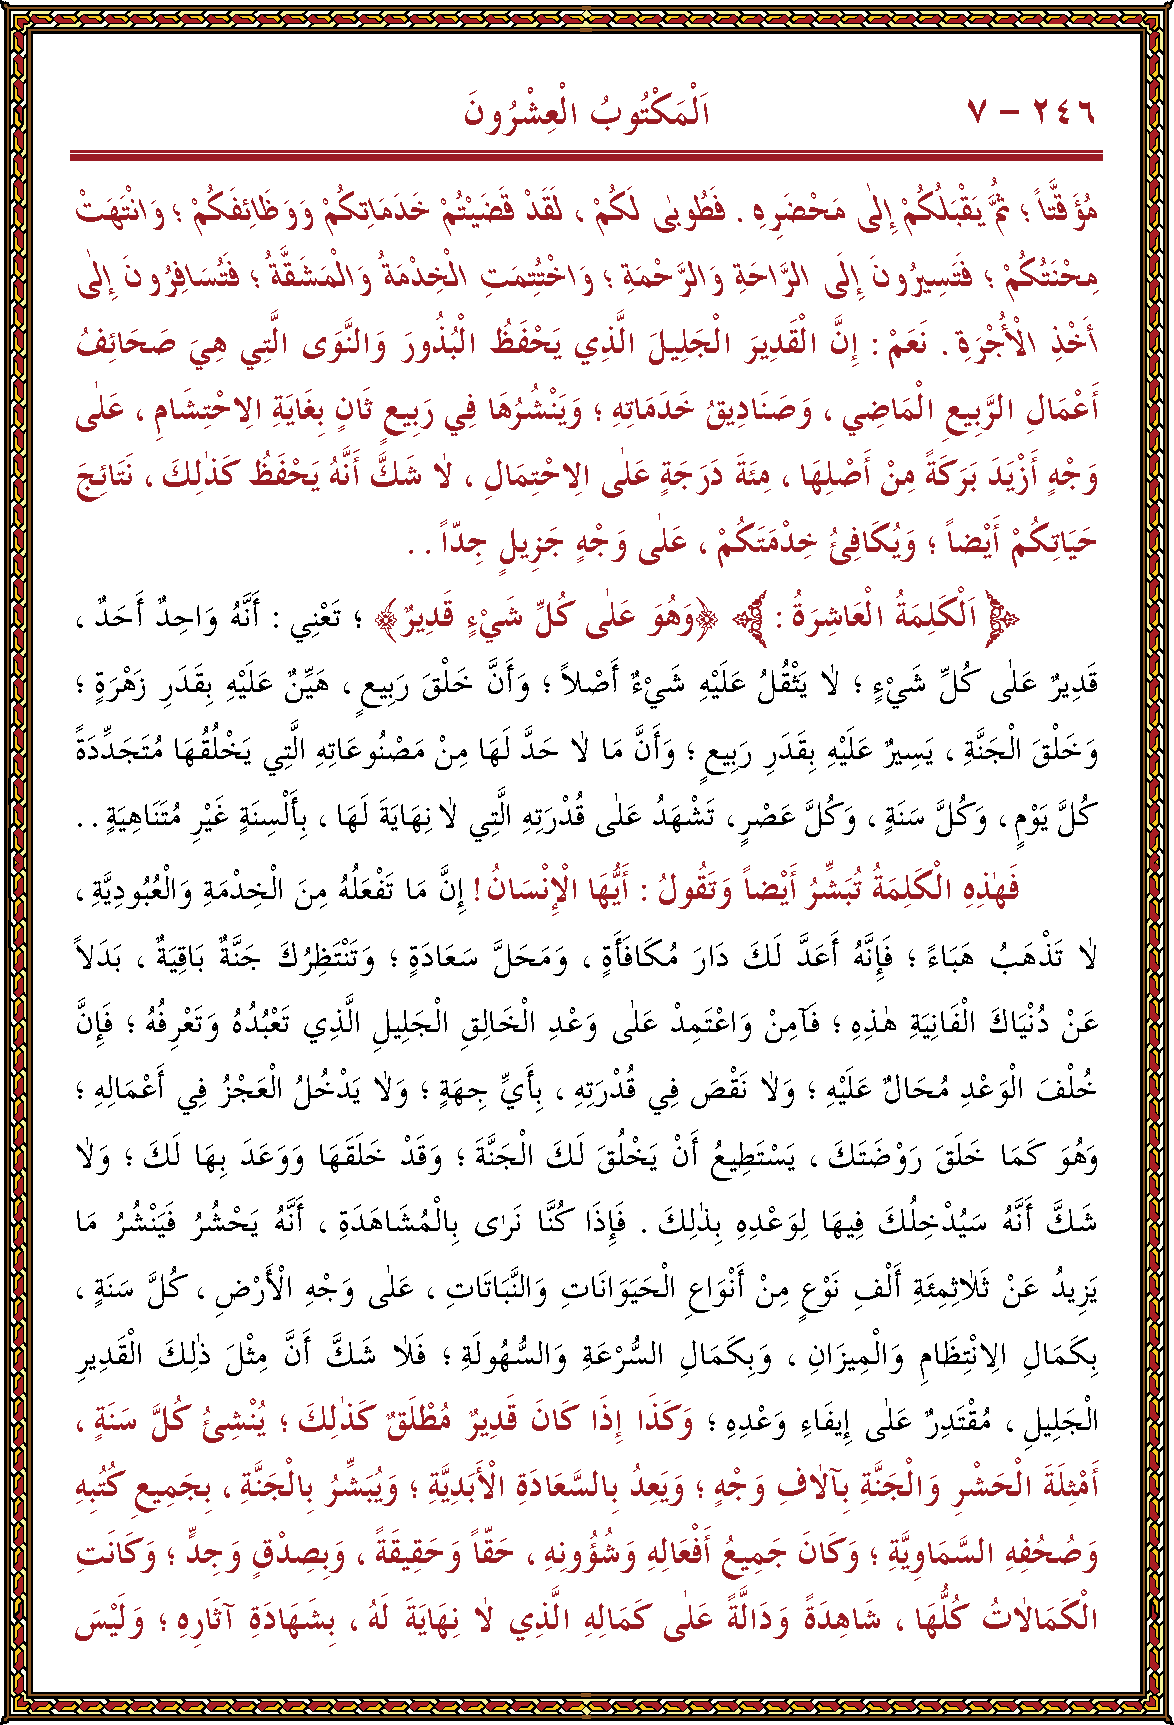 ٢٤٦ – ٧ اَلْمَكْتُوبُ الْعِشْرُونَ
مُؤَقَّتاً ؛ ثُمَّ يَقْبَلُكُمْ إِلٰى مَحْضَرِهِ . فَطُوبٰى لَكُمْ ، لَقَدْ قَضَيْتُمْ خَدَمَاتِكُمْ وَوَظَائِفَكُمْ ؛ وَانْتَهَتْ
مِحْنَتُكُمْ ؛ فَتَسِيرُونَ إِلَى الرَّاحَةِ وَالرَّحْمَةِ ؛ وَاخْتُتِمَتِ الْخِدْمَةُ وَالْمَشَقَّةُ ؛ فَتُسَافِرُونَ إِلٰى
أَخْذِ الْأُجْرَةِ . نَعَمْ : إِنَّ الْقَدِيرَ الْجَلِيلَ الَّذِي يَحْفَظُ الْبُذُورَ وَالنَّوَى الَّتِي هِيَ صَحَائِفُ
أَعْمَالِ الرَّبِيعِ الْمَاضِي ، وَصَنَادِيقُ خَدَمَاتِهِ ؛ وَيَنْشُرُهَا فِي رَبِيعٍ ثَانٍ بِغَايَةِ الِاحْتِشَامِ ، عَلٰى
وَجْهٍ أَزْيَدَ بَرَكَةً مِنْ أَصْلِهَا ، مِئَةَ دَرَجَةٍ عَلٰى الِاحْتِمَالِ ، لَا شَكَّ أَنَّهُ يَحْفَظُ كَذٰلِكَ ، نَتَائِجَ
حَيَاتِكُمْ أَيْضاً ؛ وَيُكَافِئُ خِدْمَتَكُمْ ، عَلٰى وَجْهٍ جَزِيلٍ جِدّاً . .
اَلْكَلِمَةُ الْعَاشِرَةُ : ﴿وَهُوَ عَلٰى كُلِّ شَيْءٍ قَدِيرٌ﴾ ؛ تَعْنِي : أَنَّهُ وَاحِدٌ أَحَدٌ ،
قَدِيرٌ عَلٰى كُلِّ شَيْءٍ ؛ لَا يَثْقُلُ عَلَيْهِ شَيْءٌ أَصْلاً ؛ وَأَنَّ خَلْقَ رَبِيعٍ ، هَيِّنٌ عَلَيْهِ بِقَدَرِ زَهْرَةٍ ؛
وَخَلْقَ الْجَنَّةِ ، يَسِيرٌ عَلَيْهِ بِقَدَرِ رَبِيعٍ ؛ وَأَنَّ مَا لَا حَدَّ لَهَا مِنْ مَصْنُوعَاتِهِ الَّتِي يَخْلُقُهَا مُتَجَدِّدَةً
كُلَّ يَوْمٍ ، وَكُلَّ سَنَةٍ ، وَكُلَّ عَصْرٍ ، تَشْهَدُ عَلٰى قُدْرَتِهِ الَّتِي لَا نِهَايَةَ لَهَا ، بِأَلْسِنَةٍ غَيْرِ مُتَنَاهِيَةٍ . .
فَهٰذِهِ الْكَلِمَةُ تُبَشِّرُ أَيْضاً وَتَقُولُ : أَيُّهَا الْإِنْسَانُ ! إِنَّ مَا تَفْعَلُهُ مِنَ الْخِدْمَةِ وَالْعُبُودِيَّةِ ،
لَا تَذْهَبُ هَبَاءً ؛ فَإِنَّهُ أَعَدَّ لَكَ دَارَ مُكَافَأَةٍ ، وَمَحَلَّ سَعَادَةٍ ؛ وَتَنْتَظِرُكَ جَنَّةٌ بَاقِيَةٌ ، بَدَلاً
عَنْ دُنْيَاكَ الْفَانِيَةِ هٰذِهِ ؛ فَآمِنْ وَاعْتَمِدْ عَلٰى وَعْدِ الْخَالِقِ الْجَلِيلِ الَّذِي تَعْبُدُهُ وَتَعْرِفُهُ ؛ فَإِنَّ
خُلْفَ الْوَعْدِ مُحَالٌ عَلَيْهِ ؛ وَلَا نَقْصَ فِي قُدْرَتِهِ ، بِأَيِّ جِهَةٍ ؛ وَلَا يَدْخُلُ الْعَجْزُ فِي أَعْمَالِهِ ؛
وَهُوَ كَمَا خَلَقَ رَوْضَتَكَ ، يَسْتَطِيعُ أَنْ يَخْلُقَ لَكَ الْجَنَّةَ ؛ وَقَدْ خَلَقَهَا وَوَعَدَ بِهَا لَكَ ؛ وَلَا
شَكَّ أَنَّهُ سَيُدْخِلُكَ فِيهَا لِوَعْدِهِ بِذٰلِكَ . فَإِذَا كُنَّا نَرٰى بِالْمُشَاهَدَةِ ، أَنَّهُ يَحْشُرُ فَيَنْشُرُ مَا
يَزِيدُ عَنْ ثَلَاثِمِئَةِ أَلْفِ نَوْعٍ مِنْ أَنْوَاعِ الْحَيَوَانَاتِ وَالنَّبَاتَاتِ ، عَلٰى وَجْهِ الْأَرْضِ ، كُلَّ سَنَةٍ ،
بِكَمَالِ الِانْتِظَامِ وَالْمِيزَانِ ، وَبِكَمَالِ السُّرْعَةِ وَالسُّهُولَةِ ؛ فَلَا شَكَّ أَنَّ مِثْلَ ذٰلِكَ الْقَدِيرِ
الْجَلِيلِ ، مُقْتَدِرٌ عَلٰى إِيفَاءِ وَعْدِهِ ؛ وَكَذَا إِذَا كَانَ قَدِيرٌ مُطْلَقٌ كَذٰلِكَ ؛ يُنْشِئُ كُلَّ سَنَةٍ ،
أَمْثِلَةَ الْحَشْرِ وَالْجَنَّةِ بِآلَافِ وَجْهٍ ؛ وَيَعِدُ بِالسَّعَادَةِ الْأَبَدِيَّةِ ؛ وَيُبَشِّرُ بِالْجَنَّةِ ، بِجَمِيعِ كُتُبِهِ
وَصُحُفِهِ السَّمَاوِيَّةِ ؛ وَكَانَ جَمِيعُ أَفْعَالِهِ وَشُؤُونِهِ ، حَقّاً وَحَقِيقَةً ، وَبِصِدْقٍ وَجِدٍّ ؛ وَكَانَتِ
الْكَمَالَاتُ كُلُّهَا ، شَاهِدَةً وَدَالَّةً عَلٰى كَمَالِهِ الَّذِي لَا نِهَايَةَ لَهُ ، بِشَهَادَةِ آثَارِهِ ؛ وَلَيْسَ